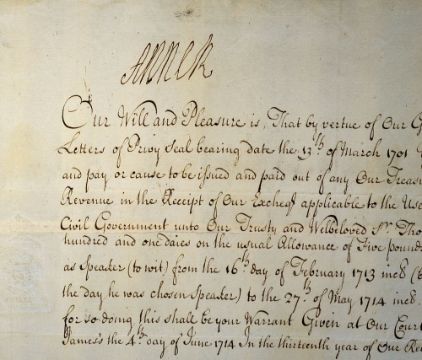 ANNE R
Our Will and Pleasure is, That by vertue of Our G
Letters of Privy Seal bearing date the 13th of March 1701
and pay or cause to be issued and paid out of any Our Treasu
Revenue in the Receipt of Our Excheqr applicable to the Use
Civil Government unto Our Trusty and Welbeloved Sr. Tho
hundred and one daies on the usual Allowance of Five pound
as Speaker (to wit) from the 16th day of February 1713 incd (b
the day he was chosen Speaker) to the 27th of May 1714 incd.
for so doing this shall be your Warrant Given at Our Court
James's the 4th day of June 1714 In the thirteenth year of Our Re